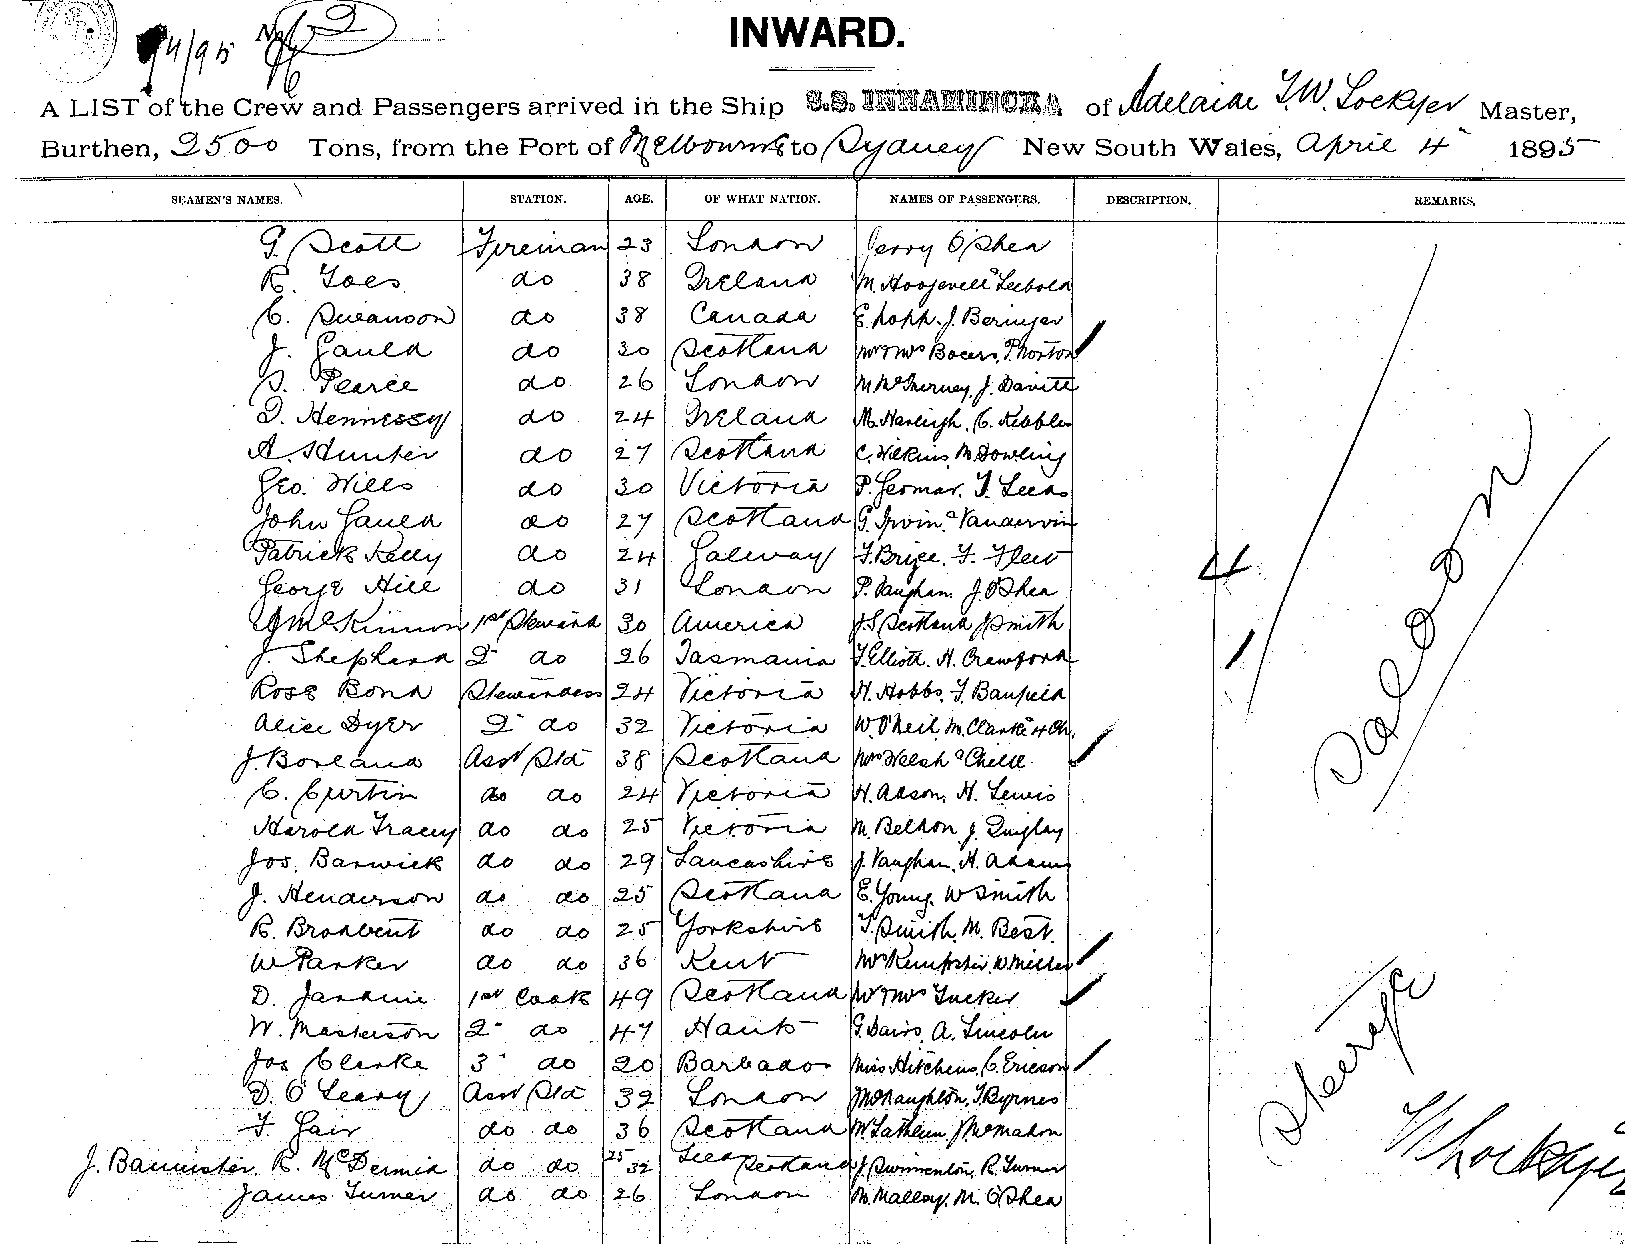 4/95 No 2
INWARD.
A LIST of the Crew and Passengers arrived in the Ship S.S. INNAMINCKA of Adelaide T. W. Lockyer Master,
Burthen, 2500 Tons, from the Port of Melbourne to Sydney New South Wales, April 4 1895
SEAMEN'S NAMES. STATION. AGE. OF WHAT NATION. NAMES OF PASSENGERS. DESCRIPTION. REMARKS.
G. Scott Fireman 23 London Jerry O'Shea
R. do 38 Ireland M.
C. Swanson do 38 Canada J. Beringer
J. Gauld do 30 Scotland Mr & Mrs T. Norton
S. Pearce do 26 London M McInerney, J. Davitt
D. Hennessy do 24 Ireland M. Hanleigh, C. Kebble
A. Hunter do 27 Scotland C. Wilkins, M Dowling
Geo. Wills do 30 Victoria P. T. Leeds
John Gauld do 27 Scotland G. Irwin
Patrick Kelly do 24 Galway T. F. Flew
George Hill do 31 London P. Vaughan. J. O'Shea
McKinnon 1st Steward 30 America J S Scotland J Smith
J. Shepherd 2 do 26 Tasmania T. Elliott. H. Crawford
Rose Bond Stewardess 24 Victoria H. Hobbs, T. Banfield
Alice Dyer 2 do 32 Victoria W. O'Neil, M. Clarke & 4 Ch.
J. Borland Asst Std 38 Scotland Mrs Welsh & Child
C. Curtin do do 24 Victoria H. Adson, H. Lewis
Harold Tracey do do 25 Victoria M. Beldon J. Quigley
Jos. Barwick do do 29 Lancashire J. Vaughan, H. Adams
J. Henderson do do 25 Scotland E. Young, W Smith
R. Broadbent do do 25 Yorkshire T. Smith, M. Best.
W Parker do do 36 Kent Mrs Kempster, W Miller
D. Jardine 1st Cook 49 Scotland Mr & Mrs Tucker
W. Masterson 2 do 47 Hants G. Davis, A. Lincoln
Jos Clarke 3 do 20 Barbados Miss Hitchens, C. Ericson
D. O'Leary Asst Std 32 London McNaughton, T. Byrnes
F. Gair do do 36 Scotland W. J McMahon
J. Bannister, R. McDermid do do 25 32 Scotland J. Swinnenton, R. Turner
James Turner do do 26 London M. Malloy, M. O'Shea
4
Saloon
Steerage
W Lockyer